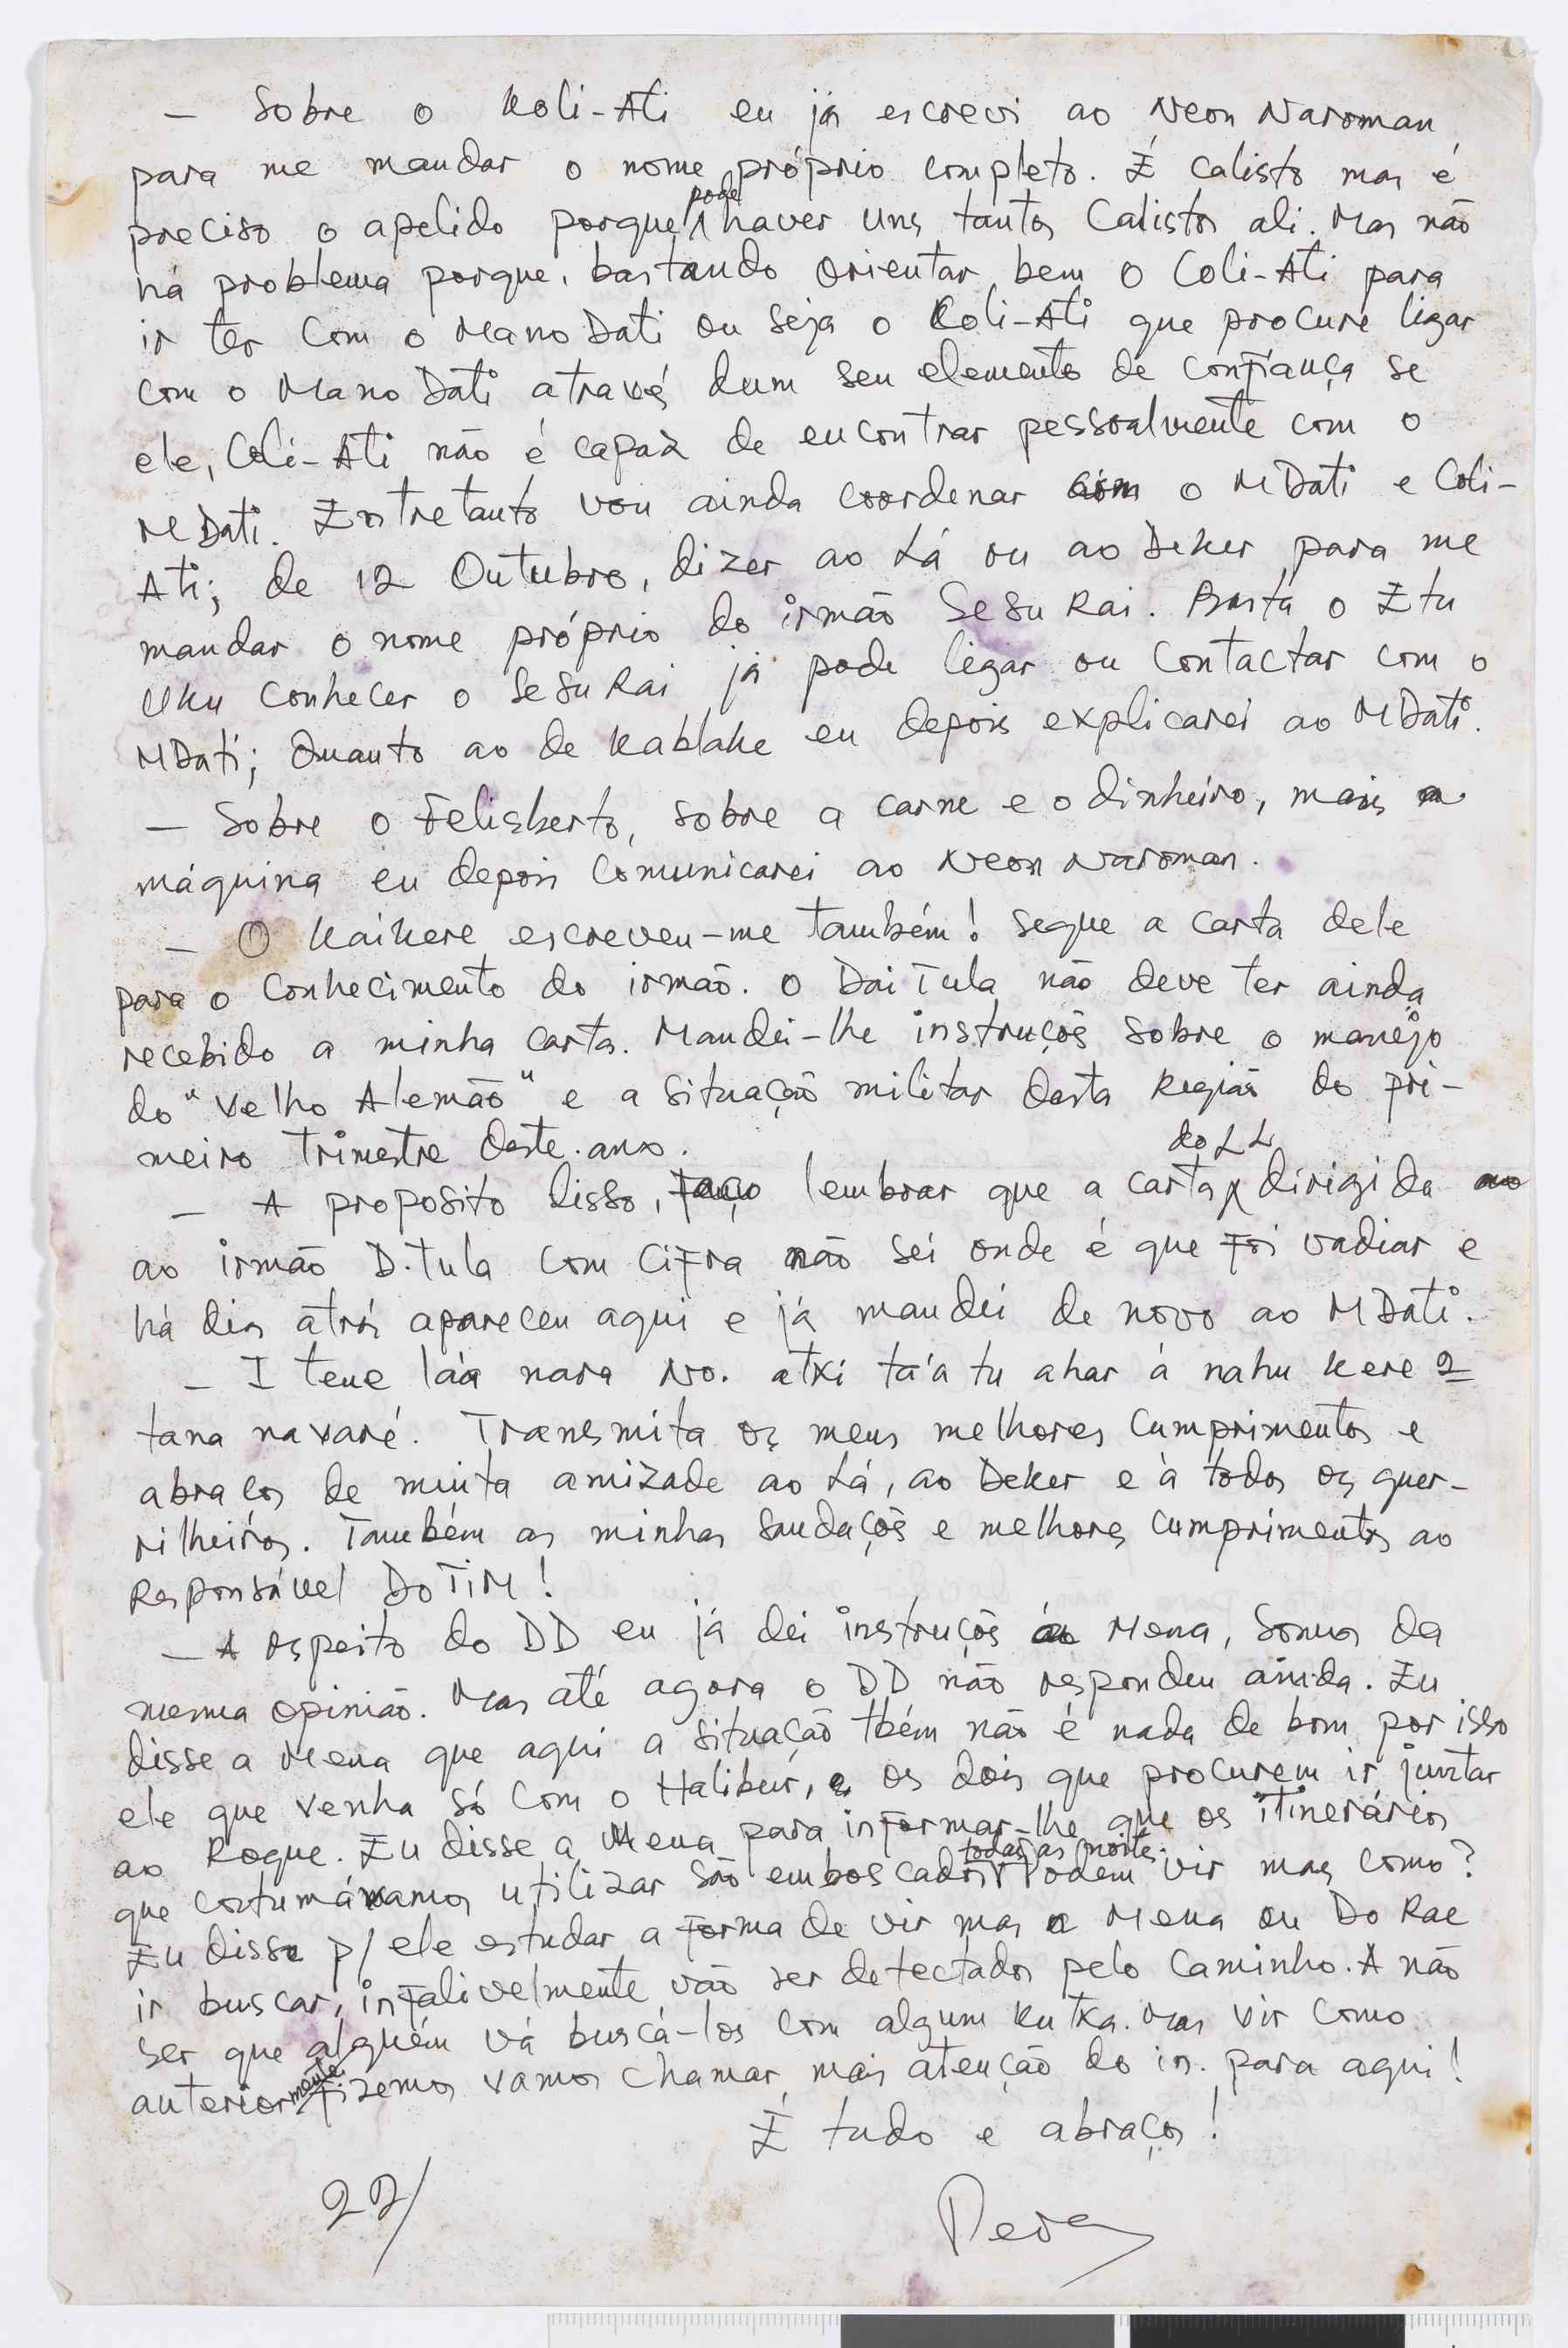 — Sobre o Koli-Ati eu já escrevi ao Neon Naroman
para me mandar o nome próprio completo. É Calisto mas é
preciso o apelido porque pode haver uns tantos Calistos ali. Mas não
há problema porque, bastando orientar bem o Coli-Ati para
ir ter com o Mano Dati ou seja o Koli-Ati que procure ligar
com o Mano Dati através dum seu elemento de confiança se
ele, Coli-Ati não é capaz de encontrar pessoalmente com o
M Dati. Entretanto vou ainda coordenar com o M Dati e Coli-
Ati; de 12 Outubro, dizer ao Lá ou ao Deker para me
mandar o nome próprio do irmão Sesu Rai. Basta o Etu
Uku conhecer o Sesu Rai já pode ligar ou contactar com o
M Dati; Quanto ao de Kablake eu depois explicarei ao M Dati.
— Sobre o Felisberto, sobre a carne e o dinheiro, mais a
máquina eu depois comunicarei ao Neon Naroman.
— O Kaikere escreveu-me também! Segue a carta dele
para o conhecimento do irmão. O Dai Tula não deve ter ainda
recebido a minha carta. Mandei-lhe instruções sobre o manejo
do "Velho Alemão" e a situação militar desta Região do pri-
meiro trimestre deste ano.
— A proposito disso, faço lembrar que a carta do LL dirigida
ao irmão D. Tula com cifra não sei onde é que foi vadiar e
há dias atrás apareceu aqui e já mandei de novo ao M Dati.
— I teue láa nara No. atxi ta'a tu ahar á nahu kere 2
tana navaré. Transmita os meus melhores cumprimentos e
abraços de muita amizade ao Lá, ao Deker e à todos os guer-
rilheiros. Também as minhas saudações e melhores cumprimentos ao
Responsável Do TiM!
— A respeito do DD eu já dei instruções à Mena, somos da
mesma opinião. Mas até agora o DD não respondeu ainda. Eu
disse a Mena que aqui a situação tbém não é nada de bom por isso
ele que venha só com o Halibur, e os dois que procurem ir juntar
ao Roque. Eu disse a Mena para informar-lhe que os itinerários
que costumávamos utilizar são emboscados todas as noites. Podem vir mas como?
Eu disse p/ ele estudar a forma de vir mas a Mena ou Do Rae
ir buscar, infalivelmente vão ser detectados pelo caminho. A não
ser que alguém vá buscá-los com algum kutxa. Mas vir como
anteriormente fizemos vamos chamar mais atenção do in. para aqui!
É tudo e abraços!
22/